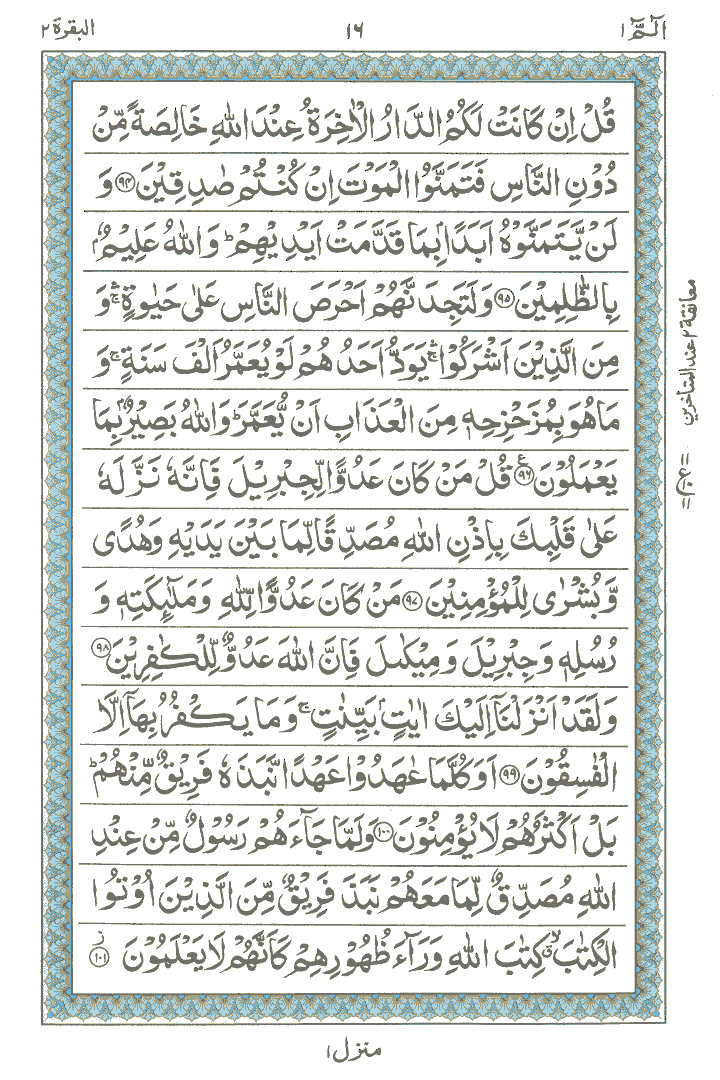 الٓمّٓ ١
١٦
البقرة ٢
قُلْ اِنْ كَانَتْ لَكُمُ الدَّارُ الْاٰخِرَةُ عِنْدَ اللّٰهِ خَالِصَةً مِّنْ
دُوْنِ النَّاسِ فَتَمَنَّوُا الْمَوْتَ اِنْ كُنْتُمْ صٰدِقِيْنَ ﴿٩٤﴾ وَ
لَنْ يَّتَمَنَّوْهُ اَبَدًۢا بِمَا قَدَّمَتْ اَيْدِيْهِمْ ؕ وَاللّٰهُ عَلِيْمٌۢ
بِالظّٰلِمِيْنَ ﴿٩٥﴾ وَلَتَجِدَنَّهُمْ اَحْرَصَ النَّاسِ عَلٰى حَيٰوةٍ ۛۚ وَ
مِنَ الَّذِيْنَ اَشْرَكُوْا ۛۚ يَوَدُّ اَحَدُهُمْ لَوْ يُعَمَّرُ اَلْفَ سَنَةٍ ۚ وَ
مَا هُوَ بِمُزَحْزِحِهٖ مِنَ الْعَذَابِ اَنْ يُّعَمَّرَ ؕ وَاللّٰهُ بَصِيْرٌۢ بِمَا
يَعْمَلُوْنَ ﴿٩٦﴾ ع قُلْ مَنْ كَانَ عَدُوًّا لِّجِبْرِيْلَ فَاِنَّهٗ نَزَّلَهٗ
عَلٰى قَلْبِكَ بِاِذْنِ اللّٰهِ مُصَدِّقًا لِّمَا بَيْنَ يَدَيْهِ وَهُدًى
وَّبُشْرٰى لِلْمُؤْمِنِيْنَ ﴿٩٧﴾ مَنْ كَانَ عَدُوًّا لِّلّٰهِ وَمَلٰٓئِكَتِهٖ وَ
رُسُلِهٖ وَجِبْرِيْلَ وَمِيْكٰىلَ فَاِنَّ اللّٰهَ عَدُوٌّ لِّلْكٰفِرِيْنَ ﴿٩٨﴾
وَلَقَدْ اَنْزَلْنَاۤ اِلَيْكَ اٰيٰتٍۭ بَيِّنٰتٍ ۚ وَمَا يَكْفُرُ بِهَاۤ اِلَّا
الْفٰسِقُوْنَ ﴿٩٩﴾ اَوَكُلَّمَا عٰهَدُوْا عَهْدًا نَّبَذَهٗ فَرِيْقٌ مِّنْهُمْ ؕ
بَلْ اَكْثَرُهُمْ لَا يُؤْمِنُوْنَ ﴿١٠٠﴾ وَلَمَّا جَآءَهُمْ رَسُوْلٌ مِّنْ عِنْدِ
اللّٰهِ مُصَدِّقٌ لِّمَا مَعَهُمْ نَبَذَ فَرِيْقٌ مِّنَ الَّذِيْنَ اُوْتُوا
الْكِتٰبَ ۙۗ كِتٰبَ اللّٰهِ وَرَآءَ ظُهُوْرِهِمْ كَاَنَّهُمْ لَا يَعْلَمُوْنَ ﴿١٠١﴾ ز
معانقة ٢ عند المتاخرين
منزل ١